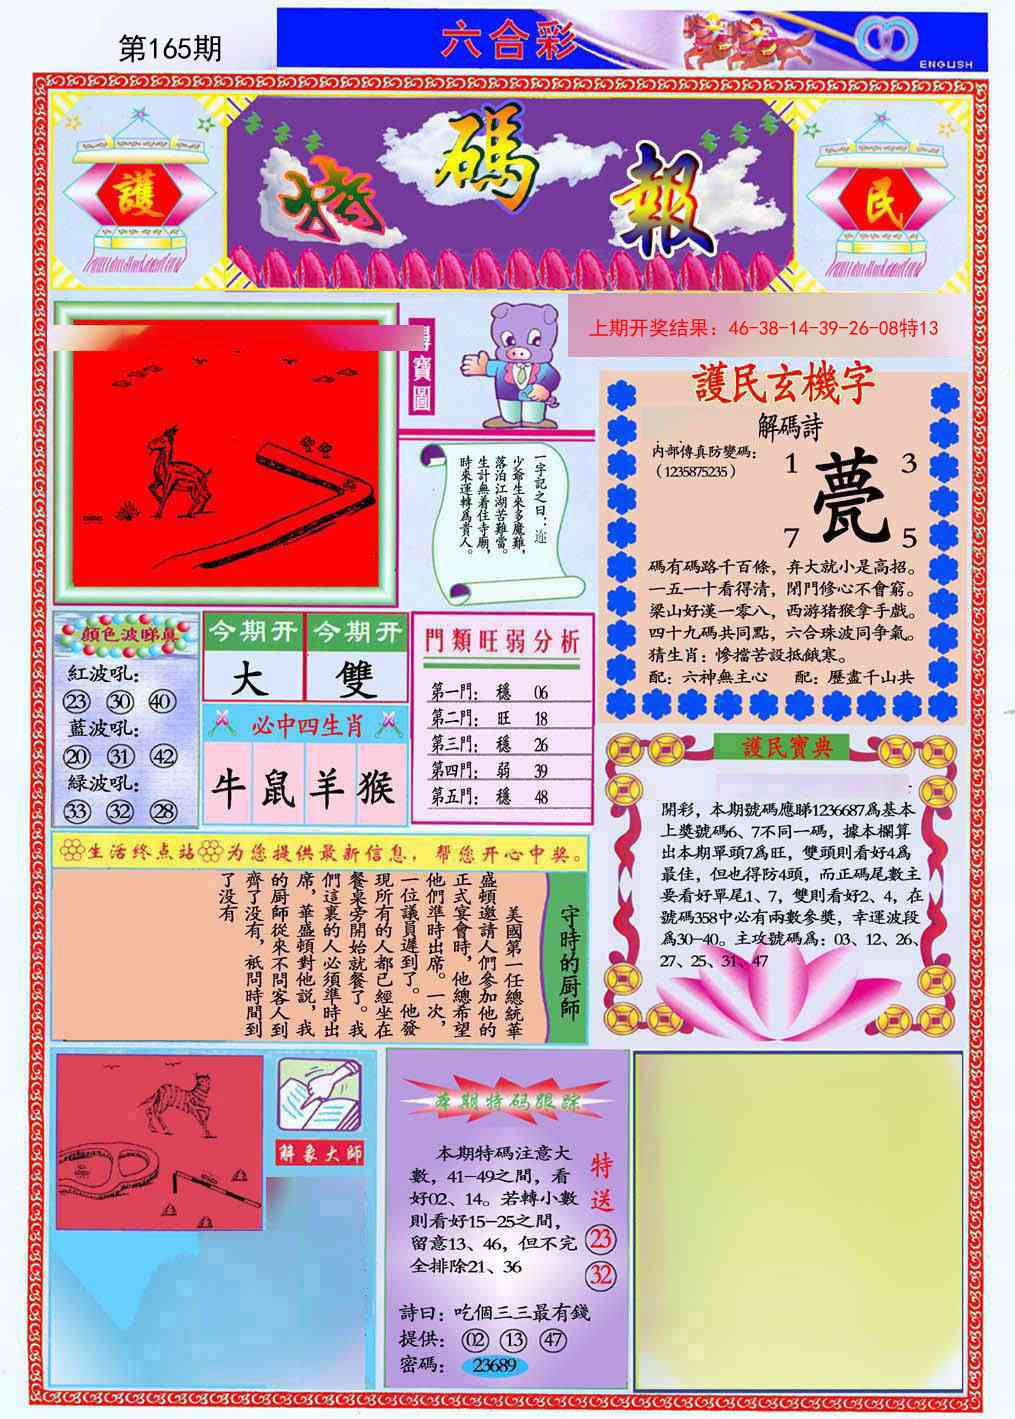 第165期
六合彩
ENGLISH
護
特碼報
民
尋寶圖
上期开奖结果：46-38-14-39-26-08特13
一字記之曰：迤
少爺生來多魔難，
落泊江湖苦難當。
生計無着住寺廟，
時來運轉爲貴人。
護民玄機字
解碼詩
内部傳真防變碼：
（1235875235）
1
3
甍
7
5
碼有碼路千百條，弃大就小是高招。
一五一十看得清，閉門修心不會窮。
梁山好漢一零八，西游猪猴拿手戲。
四十九碼共同點，六合珠波同争氣。
猜生肖：慘擋苦設抵餓寒。
配：六神無主心 配：歷盡千山共
顔色波睇真
紅波吼：
23 30 40
藍波吼：
20 31 42
緑波吼：
33 32 28
今期开 今期开
大 雙
必中四生肖
牛 鼠 羊 猴
門類旺弱分析
第一門： 穩 06
第二門： 旺 18
第三門： 穩 26
第四門： 弱 39
第五門： 穩 48
護民寶典
開彩，本期號碼應睇1236687爲基本
上獎號碼6、7不同一碼，據本欄算
出本期單頭7爲旺，雙頭則看好4爲
最佳，但也得防4頭，而正碼尾數主
要看好單尾1、7，雙則看好2、4，在
號碼358中必有兩數參獎，幸運波段
爲30-40。主攻號碼爲：03、12、26、
27、25、31、47
生活终点站 为您提供最新信息，帮您开心中奖。
守時的厨師
美國第一任總統華
盛頓邀請人們參加他的
正式宴會時，他總希望
他們準時出席。一次，
一位議員遲到了。他發
現所有的人都已經坐在
餐桌旁開始就餐了。我
們這裏的人必須準時出
席，華盛頓對他説，我
的厨師從來不問客人到
齊了没有，祇問時間到
了没有
解象大師
本期特码跟踪
本期特碼注意大
數，41-49之間，看
好02、14。若轉小數
則看好15-25之間，
留意13、46，但不完
全排除21、36
特送
23
32
詩曰：吃個三三最有錢
提供： 02 13 47
密碼： 23689